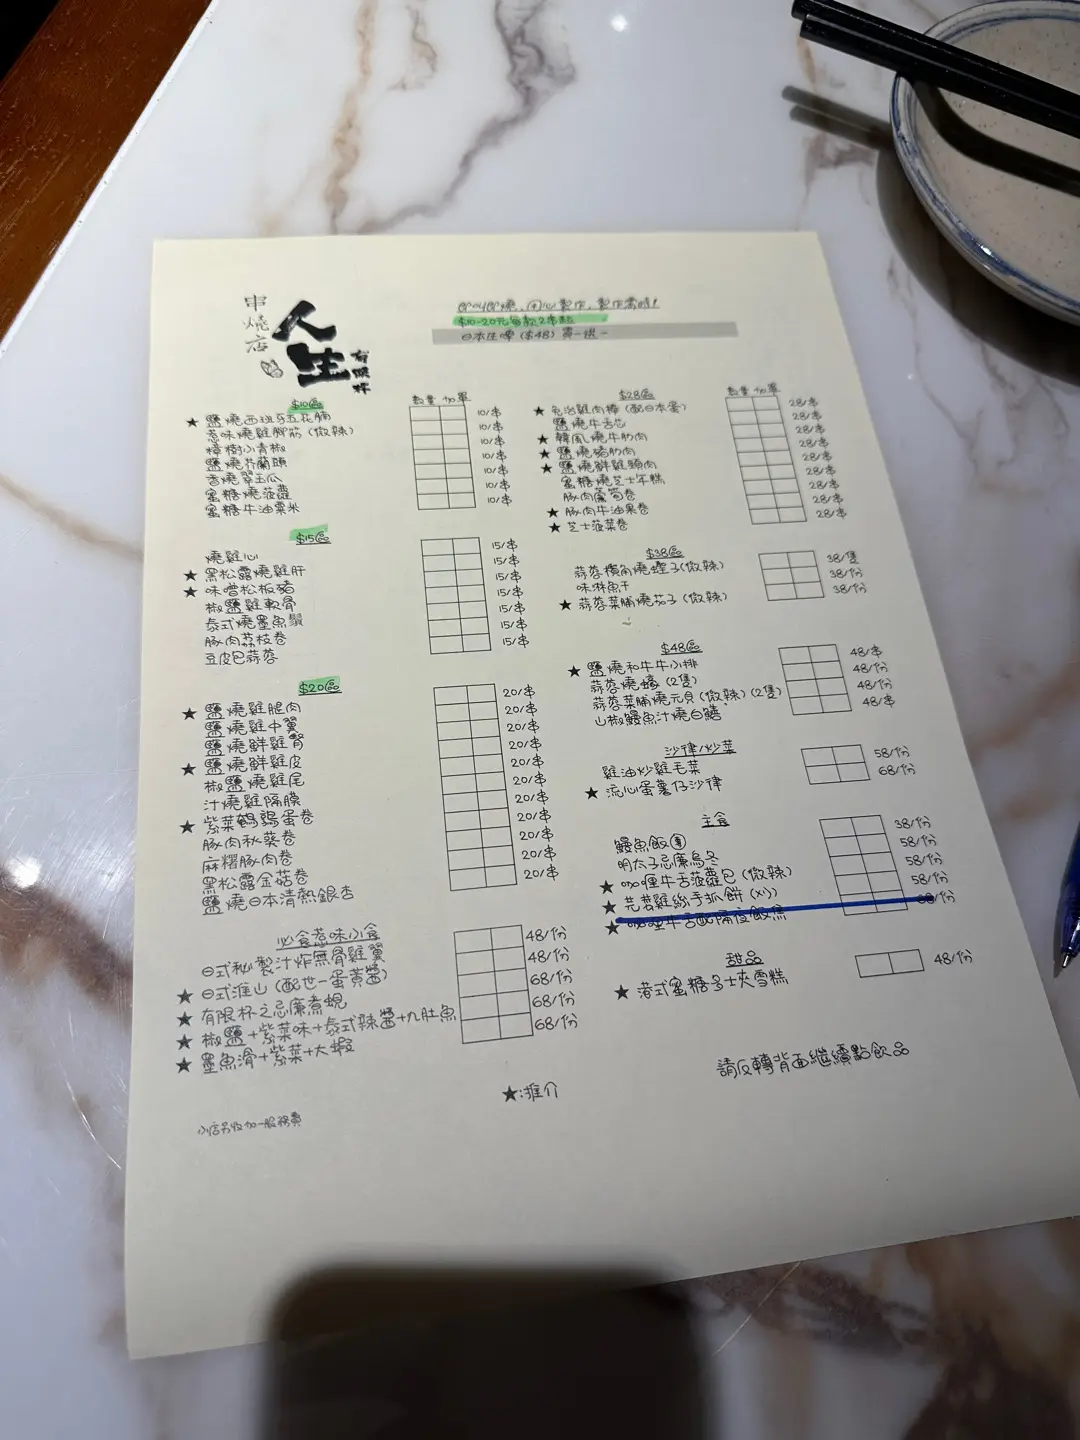 串燒店
人生
有限杯
即叫即燒,用心製作,製作需時!
$10-20元每款2串起
日本生啤($48)買一送一
$10區
數量 加單
★ 鹽燒西班牙五花腩 10/串
惹味燒雞腳筋(微辣) 10/串
樟樹小青椒 10/串
鹽燒芥蘭頭 10/串
香燒翠玉瓜 10/串
蜜糖燒菠蘿 10/串
蜜糖牛油粟米 10/串
$15區
燒雞心 15/串
★ 黑松露燒雞肝 15/串
★ 味噌松板豬 15/串
椒鹽雞軟骨 15/串
泰式燒墨魚鬚 15/串
豚肉荔枝卷 15/串
豆皮包蒜蓉 15/串
$20區
★ 鹽燒雞腿肉 20/串
鹽燒雞中翼 20/串
鹽燒鮮雞腎 20/串
★ 鹽燒鮮雞皮 20/串
椒鹽燒雞尾 20/串
汁燒雞隔膜 20/串
★ 紫菜鵪鶉蛋卷 20/串
豚肉秋葵卷 20/串
麻糬豚肉卷 20/串
黑松露金菇卷 20/串
鹽燒日本清熱銀杏 20/串
必食惹味小食
日式秘製汁炸無骨雞翼 48/份
★ 日式淮山(配世一蛋黃醬) 48/份
★ 有限杯之忌廉煮蜆 68/份
★ 椒鹽+紫菜味+泰式辣醬+九肚魚 68/份
★ 墨魚滑+紫菜+大蝦 68/份
小店另收加一服務費
★:推介
$28區
數量 加單
★ 免治雞肉棒(配日本蛋) 28/串
鹽燒牛舌芯 28/串
★ 韓風燒牛肋肉 28/串
★ 鹽燒豬肋肉 28/串
★ 鹽燒鮮雞頸肉 28/串
蜜糖燒芝士年糕 28/串
豚肉蘆筍卷 28/串
★ 豚肉牛油果卷 28/串
★ 芝士菠菜卷 28/串
$38區
蒜蓉欖角燒蟶子(微辣) 38/隻
味淋魚干 38/份
★ 蒜蓉菜脯燒茄子(微辣) 38/份
$48區
★ 鹽燒和牛牛小排 48/串
蒜蓉燒蠔(2隻) 48/份
蒜蓉菜脯燒元貝(微辣)(2隻) 48/份
山椒鰻魚汁燒白鱔 48/串
沙律/炒菜
雞油炒雞毛菜 58/份
★ 流心蛋薯仔沙律 68/份
主食
鰻魚飯㊇ 38/份
明太子忌廉烏冬 58/份
★ 咖喱牛舌菠蘿包(微辣) 58/份
★ 芫荽雞絲手抓餅(凍) 58/份
★ 咖喱牛舌配隔夜飯焦 68/份
甜品
★ 港式蜜糖多士夾雪糕 48/份
請反轉背面繼續點飲品